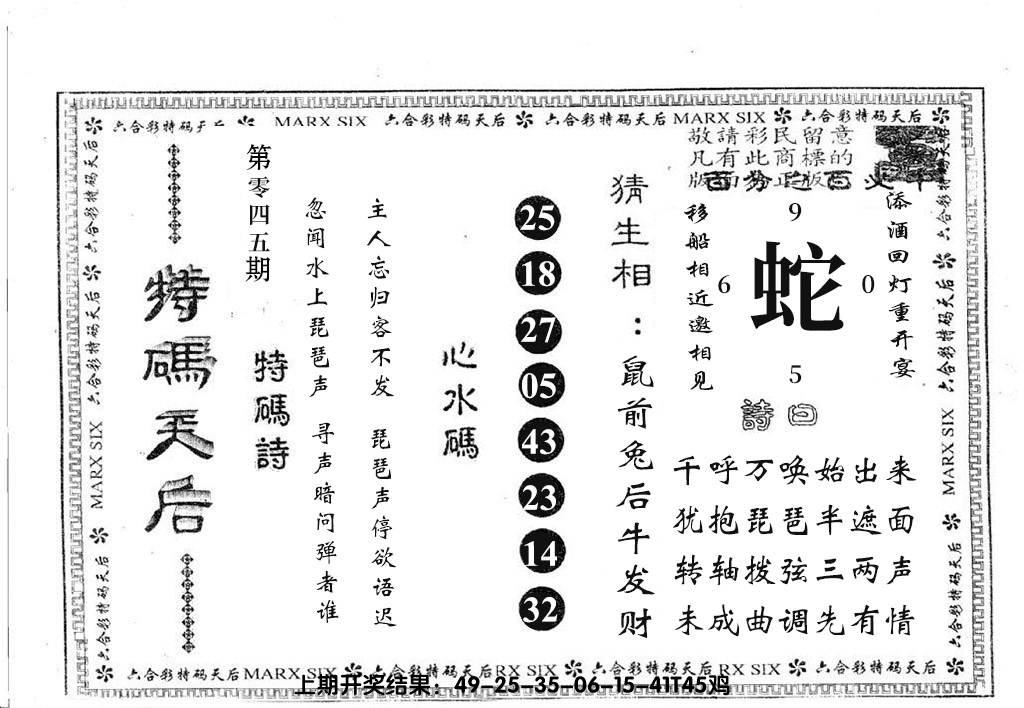 六合彩特码天后 MARX SIX 六合彩特码天后 六合彩特码天后 MARX SIX 六合彩特码天后
敬請彩民留意
凡有此商標的
版面为正版
添酒回灯重开宴
移船相近邀相见
9
6 蛇 0
5
詩曰
千呼万唤始出来
犹抱琵琶半遮面
转轴拨弦三两声
未成曲调先有情
猜生相：鼠前兔后牛发财
25
18
27
05
43
23
14
32
心水碼
主人忘归客不发 琵琶声停欲语迟
忽闻水上琵琶声 寻声暗问弹者谁
特碼詩
第零四五期
特碼天后
六合彩特码天后 六合彩特码天后 MARX SIX 六合彩特码天后
六合彩特码天后 六合彩特码天后 MARX SIX 六合彩特码天后
六合彩特码天后 MARX SIX 六合彩特码天后 RX SIX 六合彩特码天后 RX SIX 六合彩特码天后
上期开奖结果：49-25-35-06-15-41T45鸡